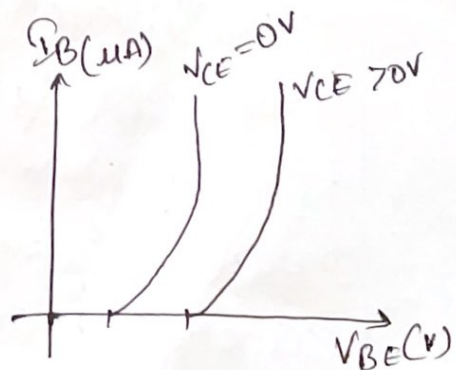 I_B(μA)
V_CE=0V
V_CE >0V
V_BE(V)